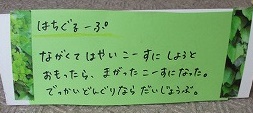 はちぐるーぷ
ながくて はやい こーすに しようと
おもったら、まがった こーすに なった。
でっかい どんぐりなら だいじょうぶ。